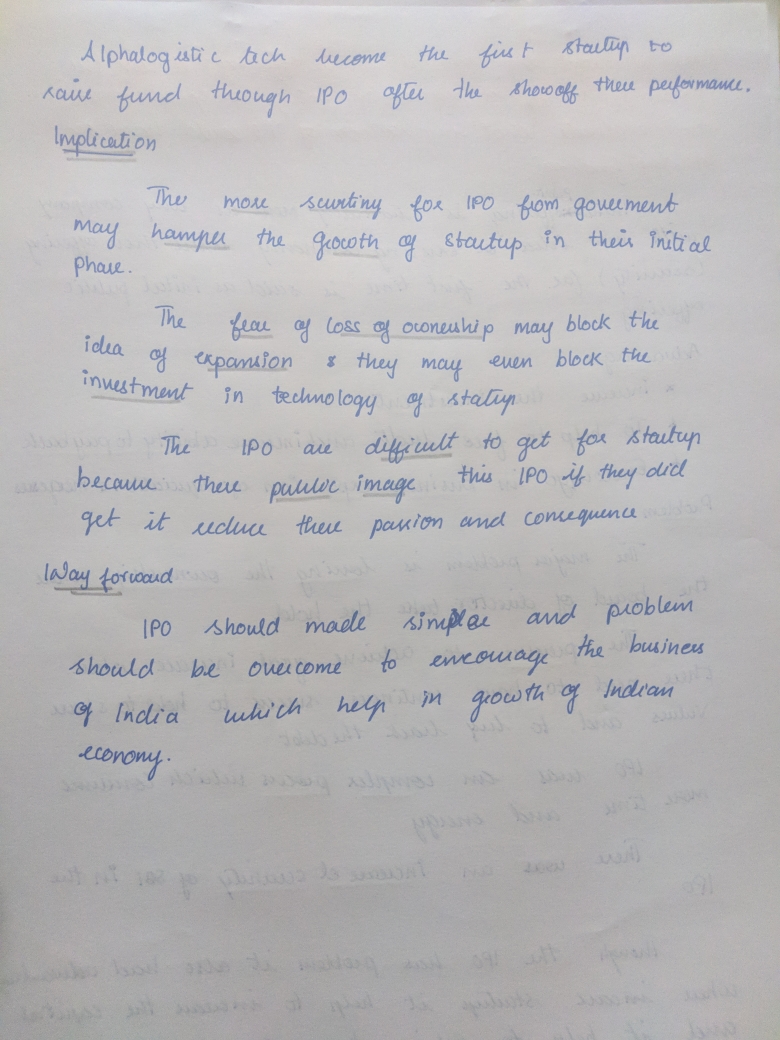 Alphalogistic tech become the first startup to
raise fund through IPO after the showoff there performance.
Implication
The more scurtiny for IPO from goverment
may hamper the growth of startup in their initial
phase.
The fear of loss of ownership may block the
idea of expansion & they may even block the
investment in technology of startup
The IPO are difficult to get for startup
because there public image this IPO if they did
get it reduce there passion and consequence
Way forward
IPO should made simple and problem
should be overcome to encourage the business
of India which help in growth of Indian
economy.